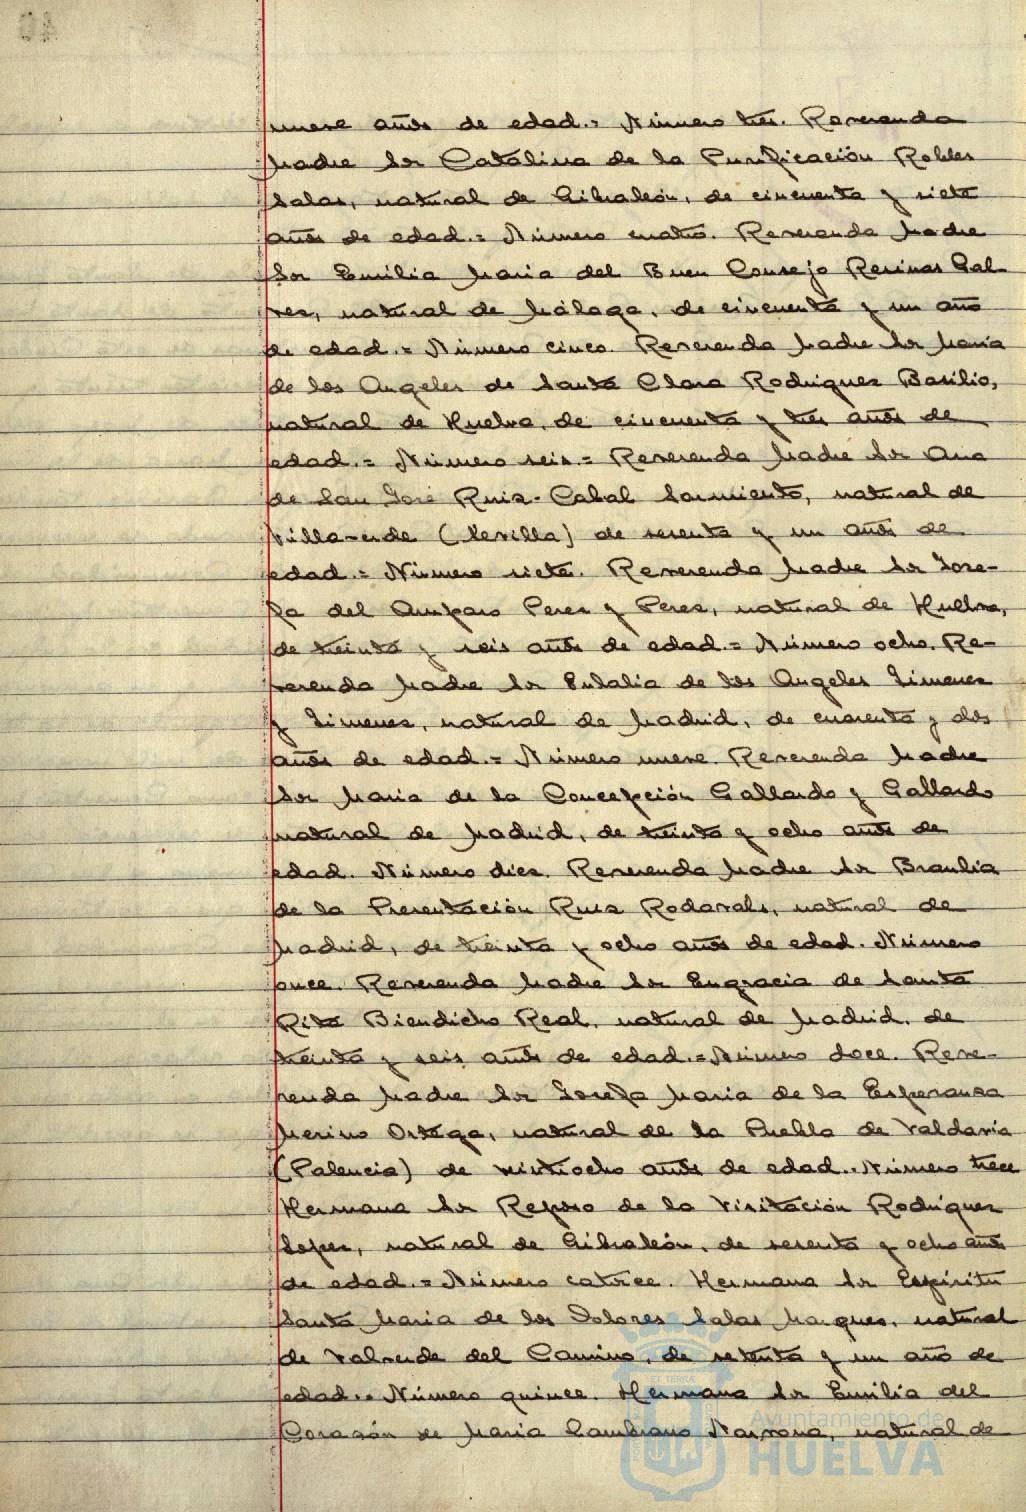 nueve años de edad.= Número tres. Reverenda
Madre Sor Catalina de la Purificación Robles
Salas, natural de Gibraleón, de cincuenta y siete
años de edad.= Número cuatro. Reverenda Madre
Sor Emilia María del Buen Consejo Resinas Gal-
vez, natural de Málaga, de cincuenta y un año
de edad.= Número cinco. Reverenda Madre Sor María
de los Angeles de Santa Clara Rodriguez Basilio,
natural de Huelva, de cincuenta y tres años de
edad.= Número seis.= Reverenda Madre Sor Ana
de San José Ruiz-Cabal Sarmiento, natural de
Villaverde (Sevilla) de sesenta y un años de
edad.= Número siete. Reverenda Madre Sor Jose-
fa del Amparo Perez y Perez, natural de Huelva,
de treinta y seis años de edad.= Número ocho. Re-
verenda Madre Sor Eulalia de los Angeles Jimenez
y Jimenez, natural de Madrid, de cuarenta y dos
años de edad.= Número nueve. Reverenda Madre
Sor María de la Concepción Gallardo y Gallardo
natural de Madrid, de treinta y ocho años de
edad. Número diez. Reverenda Madre Sor Braulia
de la Presentación Ruiz Rodavalo, natural de
Madrid, de treinta y ocho años de edad. Número
once. Reverenda Madre Sor Engracia de Santa
Rita Biendicho Real, natural de Madrid, de
treinta y seis años de edad.= Número doce. Reve-
renda Madre Sor Josefa María de la Esperanza
Merino Ortega, natural de la Puebla de Valdavia
(Palencia) de veintiocho años de edad.. Número trece
Hermana Sor Reposo de la Visitación Rodriguez
Lopez, natural de Gibraleón, de sesenta y ocho años
de edad.= Número catorce. Hermana Sor Espíritu
Santo María de los Dolores Salas Marquez, natural
de Valverde del Camino, de setenta y un año de
edad.= Número quince. Hermana Sor Emilia del
Corazón de María Cambrano Narrona, natural de
Ayuntamiento de
HUELVA